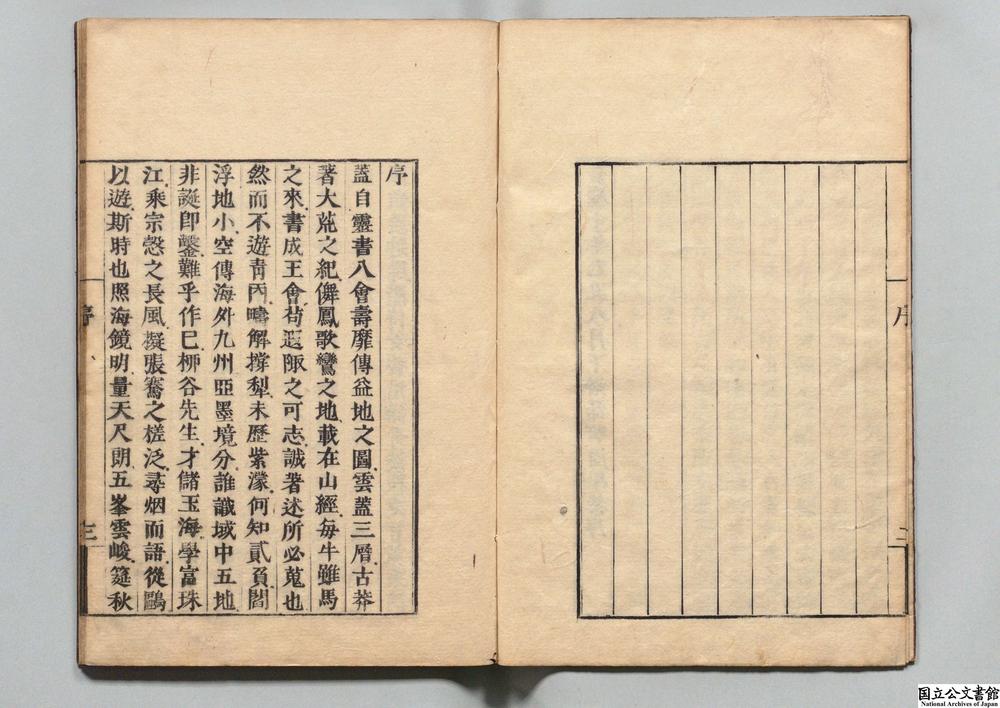 序
三
序
蓋自靈書八會壽靡傳益地之圖雲蓋三層古莽
著大荒之紀儛鳳歌鸞之地載在山經每牛雖馬
之來書成王會苟遐陬之可志誠著述所必蒐也
然而不遊青丙疇解撐犁未歷紫濛何知貳負闇
浮地小空傳海外九州亞墨境分誰識域中五地
非誕即鑿難乎作巳柳谷先生才儲玉海學富珠
江乘宗慤之長風擬張騫之槎泛尋烟而語從鷗
以遊斯時也照海鏡明量天尺朗五峯雲峻筵秋
序
三
国立公文書館
National Archives of Japan